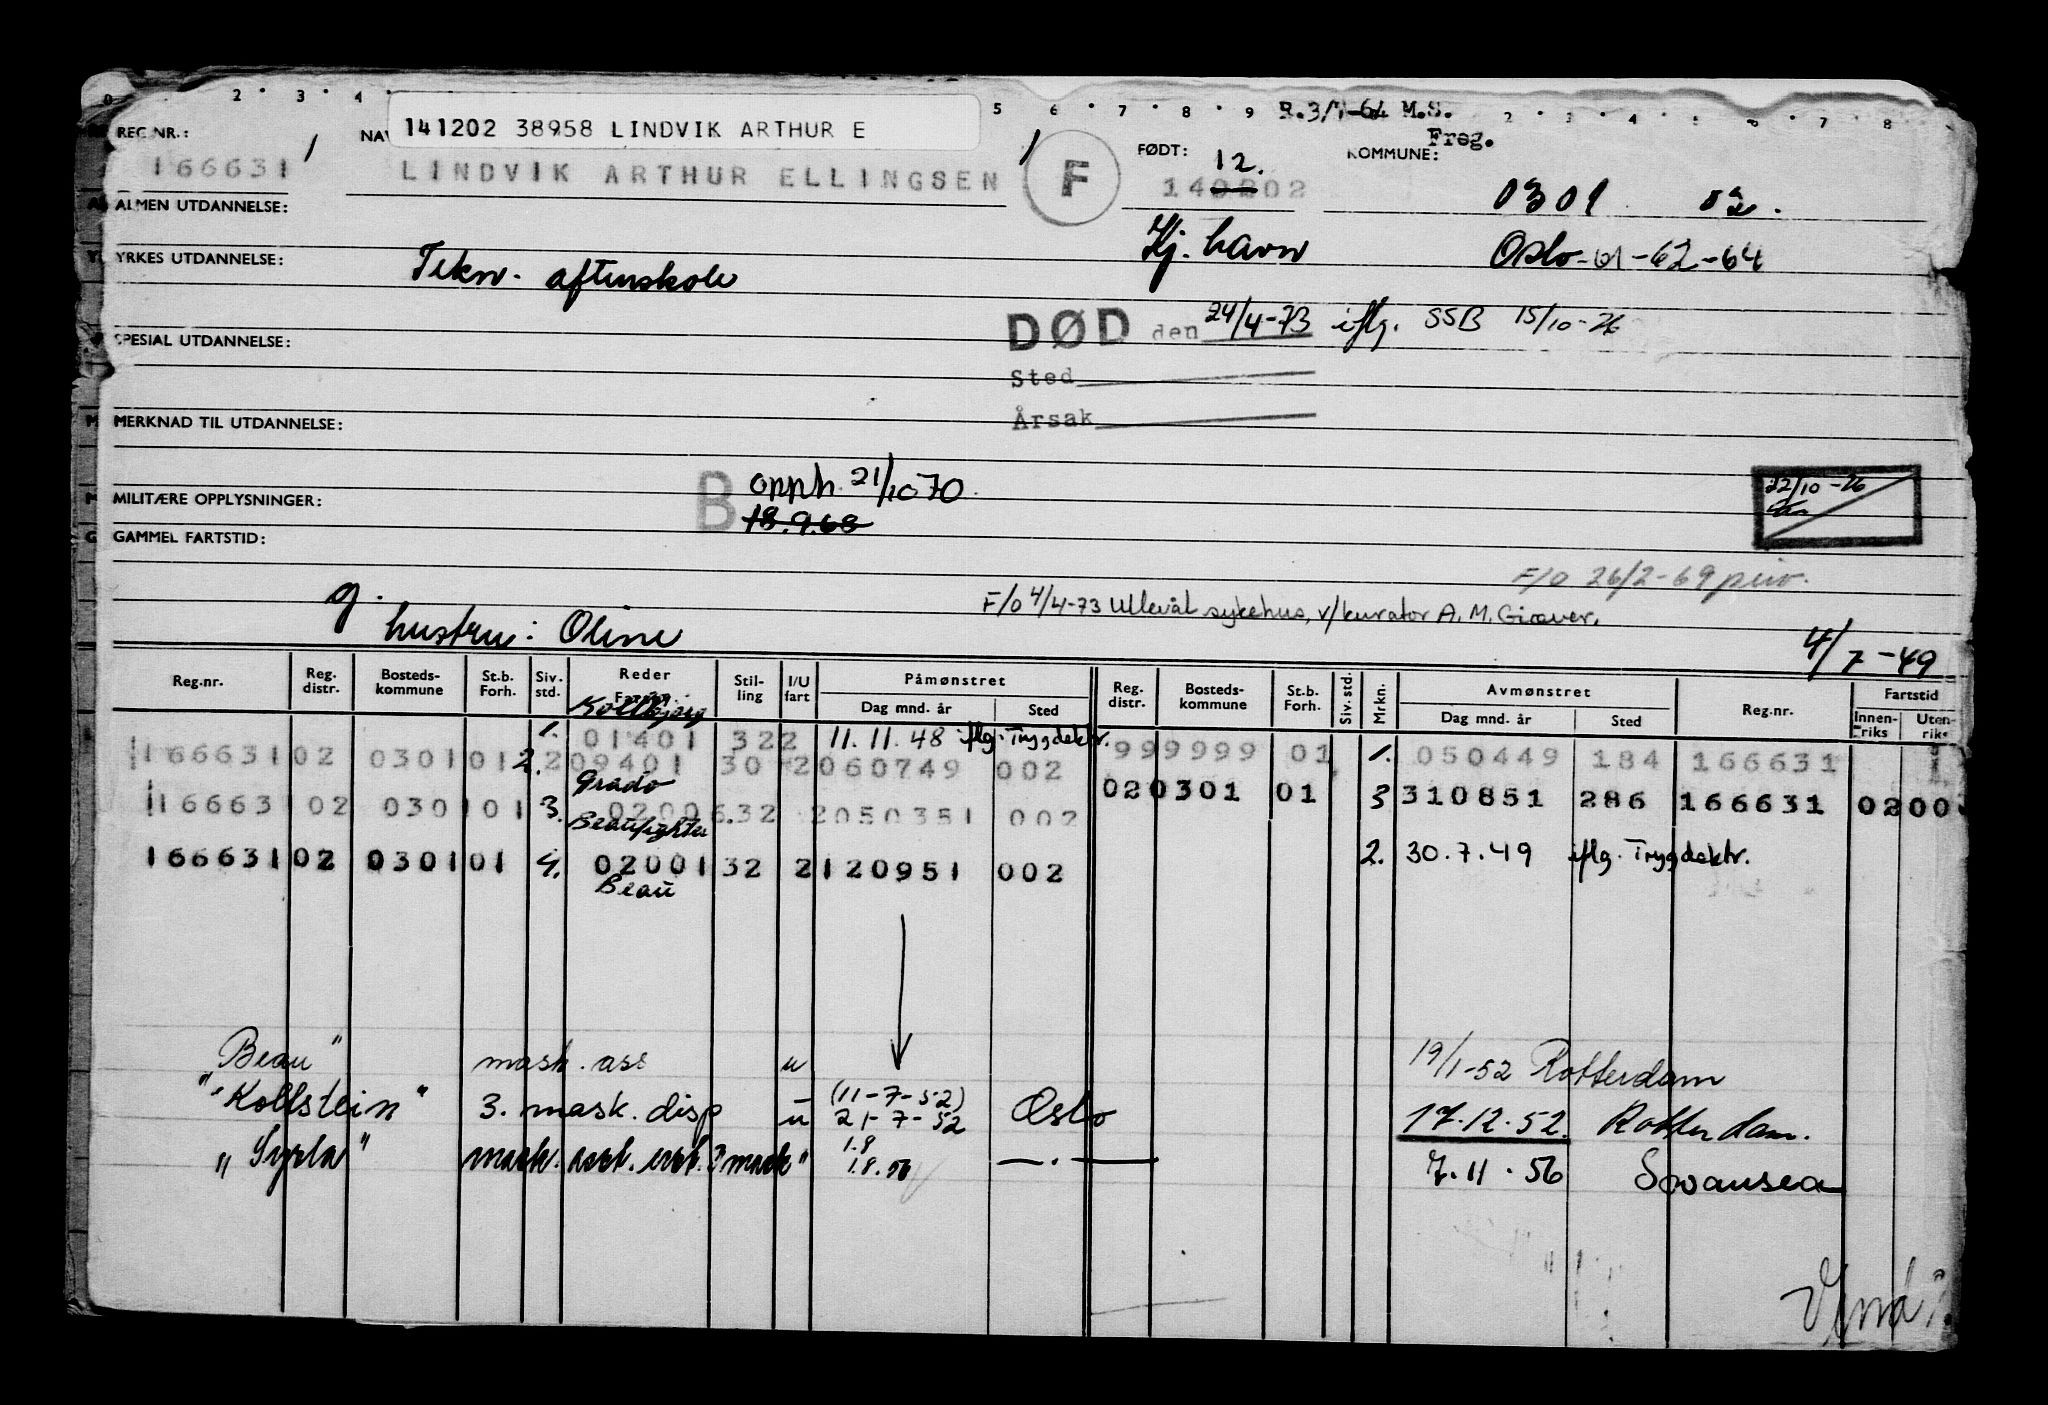 0 2 3 4 5 6 7 8 9 R.3/7-64 M.S. 2 3 4 5 6 7 8
Frag.
REG.NR.: / NAV 141202 38958 LINDVIK ARTHUR E / FØDT: 12. KOMMUNE:
166631 LINDVIK ARTHUR ELLINGSEN F 140202 0301 02.
ALMEN UTDANNELSE:
Kj. havn Oslo-01-62-64
YRKES UTDANNELSE: Tekn. aftenskole
DØD den 24/4-73 iflg. SSB 15/10-76
SPESIAL UTDANNELSE:
Sted
Årsak
MERKNAD TIL UTDANNELSE:
B opph. 21/10 70
MILITÆRE OPPLYSNINGER: 18.9.68
22/10-76
GAMMEL FARTSTID:
F/O 26/2-69 priv.
g. F/O 4/4-73 Ullevål sykehus, v/kurator A. M. Giæver.
hustru: Oline 4/7-49
Reg.nr. Reg. distr. Bosteds-kommune St.b. Forh. Siv. std. Reder Stil-ling I/U fart Påmønstret Dag mnd. år Sted Reg. distr. Bosteds-kommune St.b. Forh. Siv. std. Mrkn. Avmønstret Dag mnd. år Sted Reg.nr. Fartstid Innen-riks Uten-riks
Kollbjørg
1. 01401 322 11.11.48 iflg. Trygdektr. 999999 01 1. 050449 184 166631
166631 02 0301 01 2. 2 09401 30 2 060749 002
Grado 02 0301 01 3 310851 286 166631 02 00
166631 02 0301 01 3. 02006 32 2 050351 002
Beaufighter
2. 30.7.49 iflg. Trygdektr.
166631 02 0301 01 4. 02001 32 2 120951 002
Beau
"Beau" mask. ass u 19/1-52 Rotterdam
"Kollstein" 3. mask. disp u (11-7-52) 21-7-52 Oslo 17.12.52. Rotterdam.
"Syrla" mask. asst. erst. 3 mask " 1.8 1.8.56 —.— 7.11.56 Swansea
Vend!